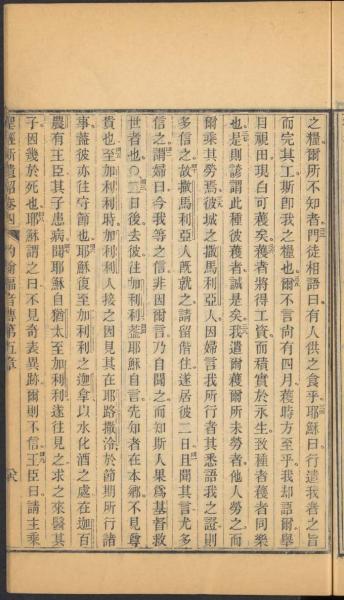 之糧爾所不知者門徒相語曰有人供之食乎耶穌曰行遣我者之旨
而完其工斯卽我之糧也爾不言尙有四月穫時方至乎我却語爾擧
目視田現白可穫矣穫者將得工資而積實於永生致種者穫者同樂
也是則諺謂此種彼穫者誠是矣我遣爾穫爾所未勞者他人勞之而
爾乘其勞焉彼城之撒馬利亞人因婦言我所行者其悉語我之證則
多信之故撒馬利亞人旣就之請留偕住遂居彼二日且聞其言尤多
信之謂婦曰今我等之信非因爾言乃自聞之而知斯人果爲基督救
世者也○二日後去彼往加利利葢耶穌自言先知者在本鄉不見尊
貴也至加利利時加利利人接之因見其在耶路撒冷於節期所行諸
事葢彼亦往守節也耶穌復至加利利之迦拿以水化酒之處在迦百
農有王臣其子患病聞耶穌自猶太至加利利遂往見之求之來醫其
子因幾於死也耶穌謂之曰不見奇表異跡爾則不信王臣曰請主乘
聖經新遺詔卷四 約翰福音傳第五章